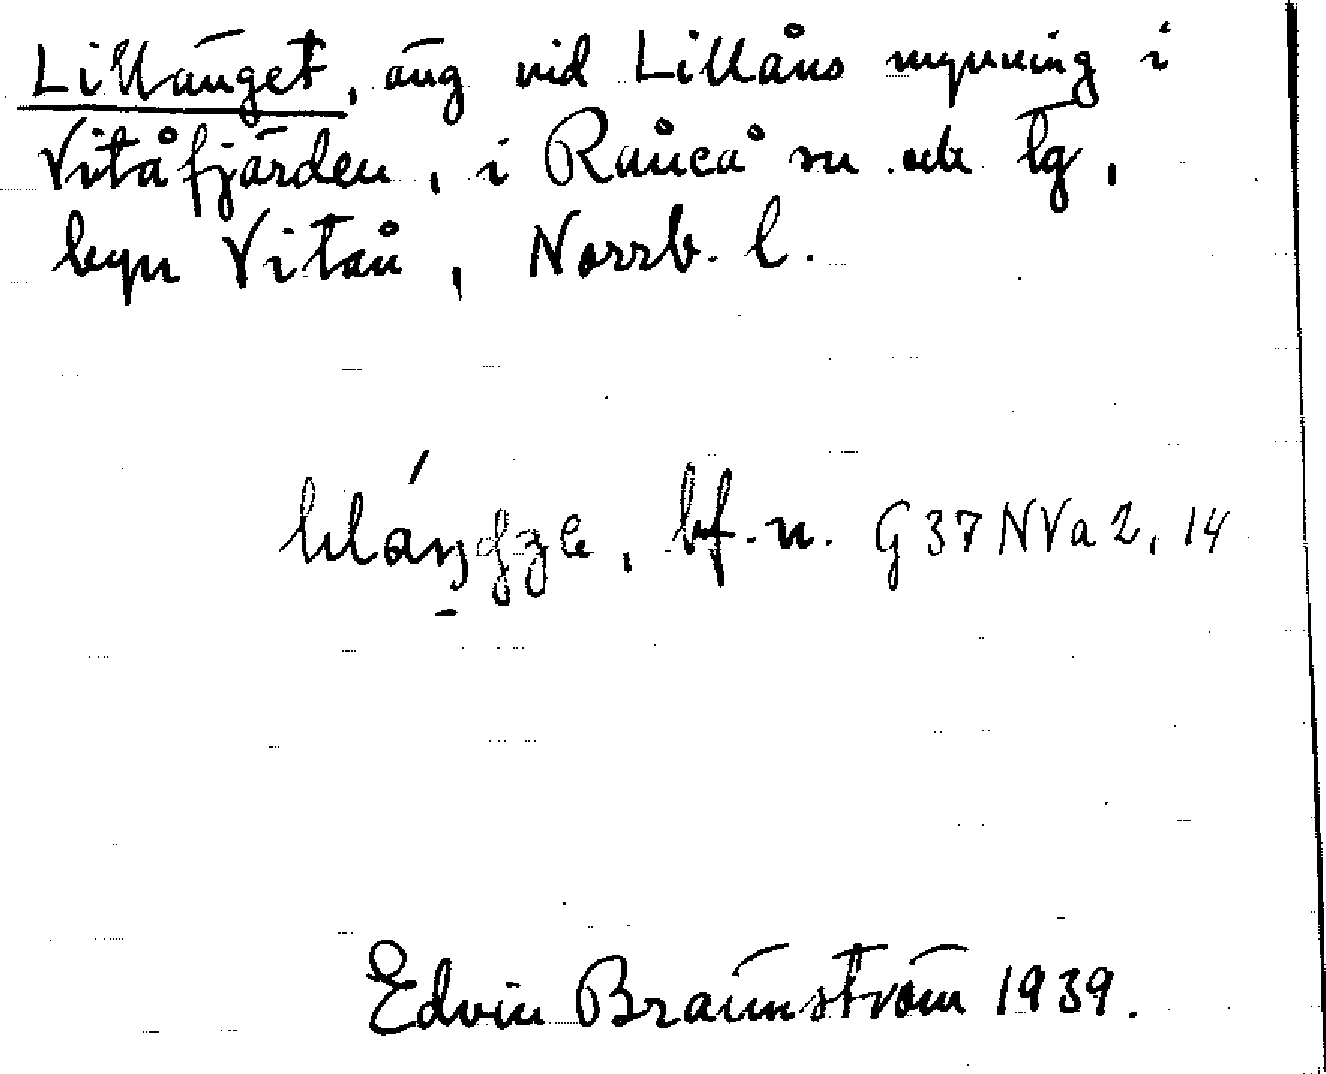 Lillänget, äng vid Lillåns mynning i
Vitåfjärden, i Råneå sn och lg,
byn Vitån, Norrb. l.
bf. n. G 37 NV a 2, 14
Edvin Brännström 1939.